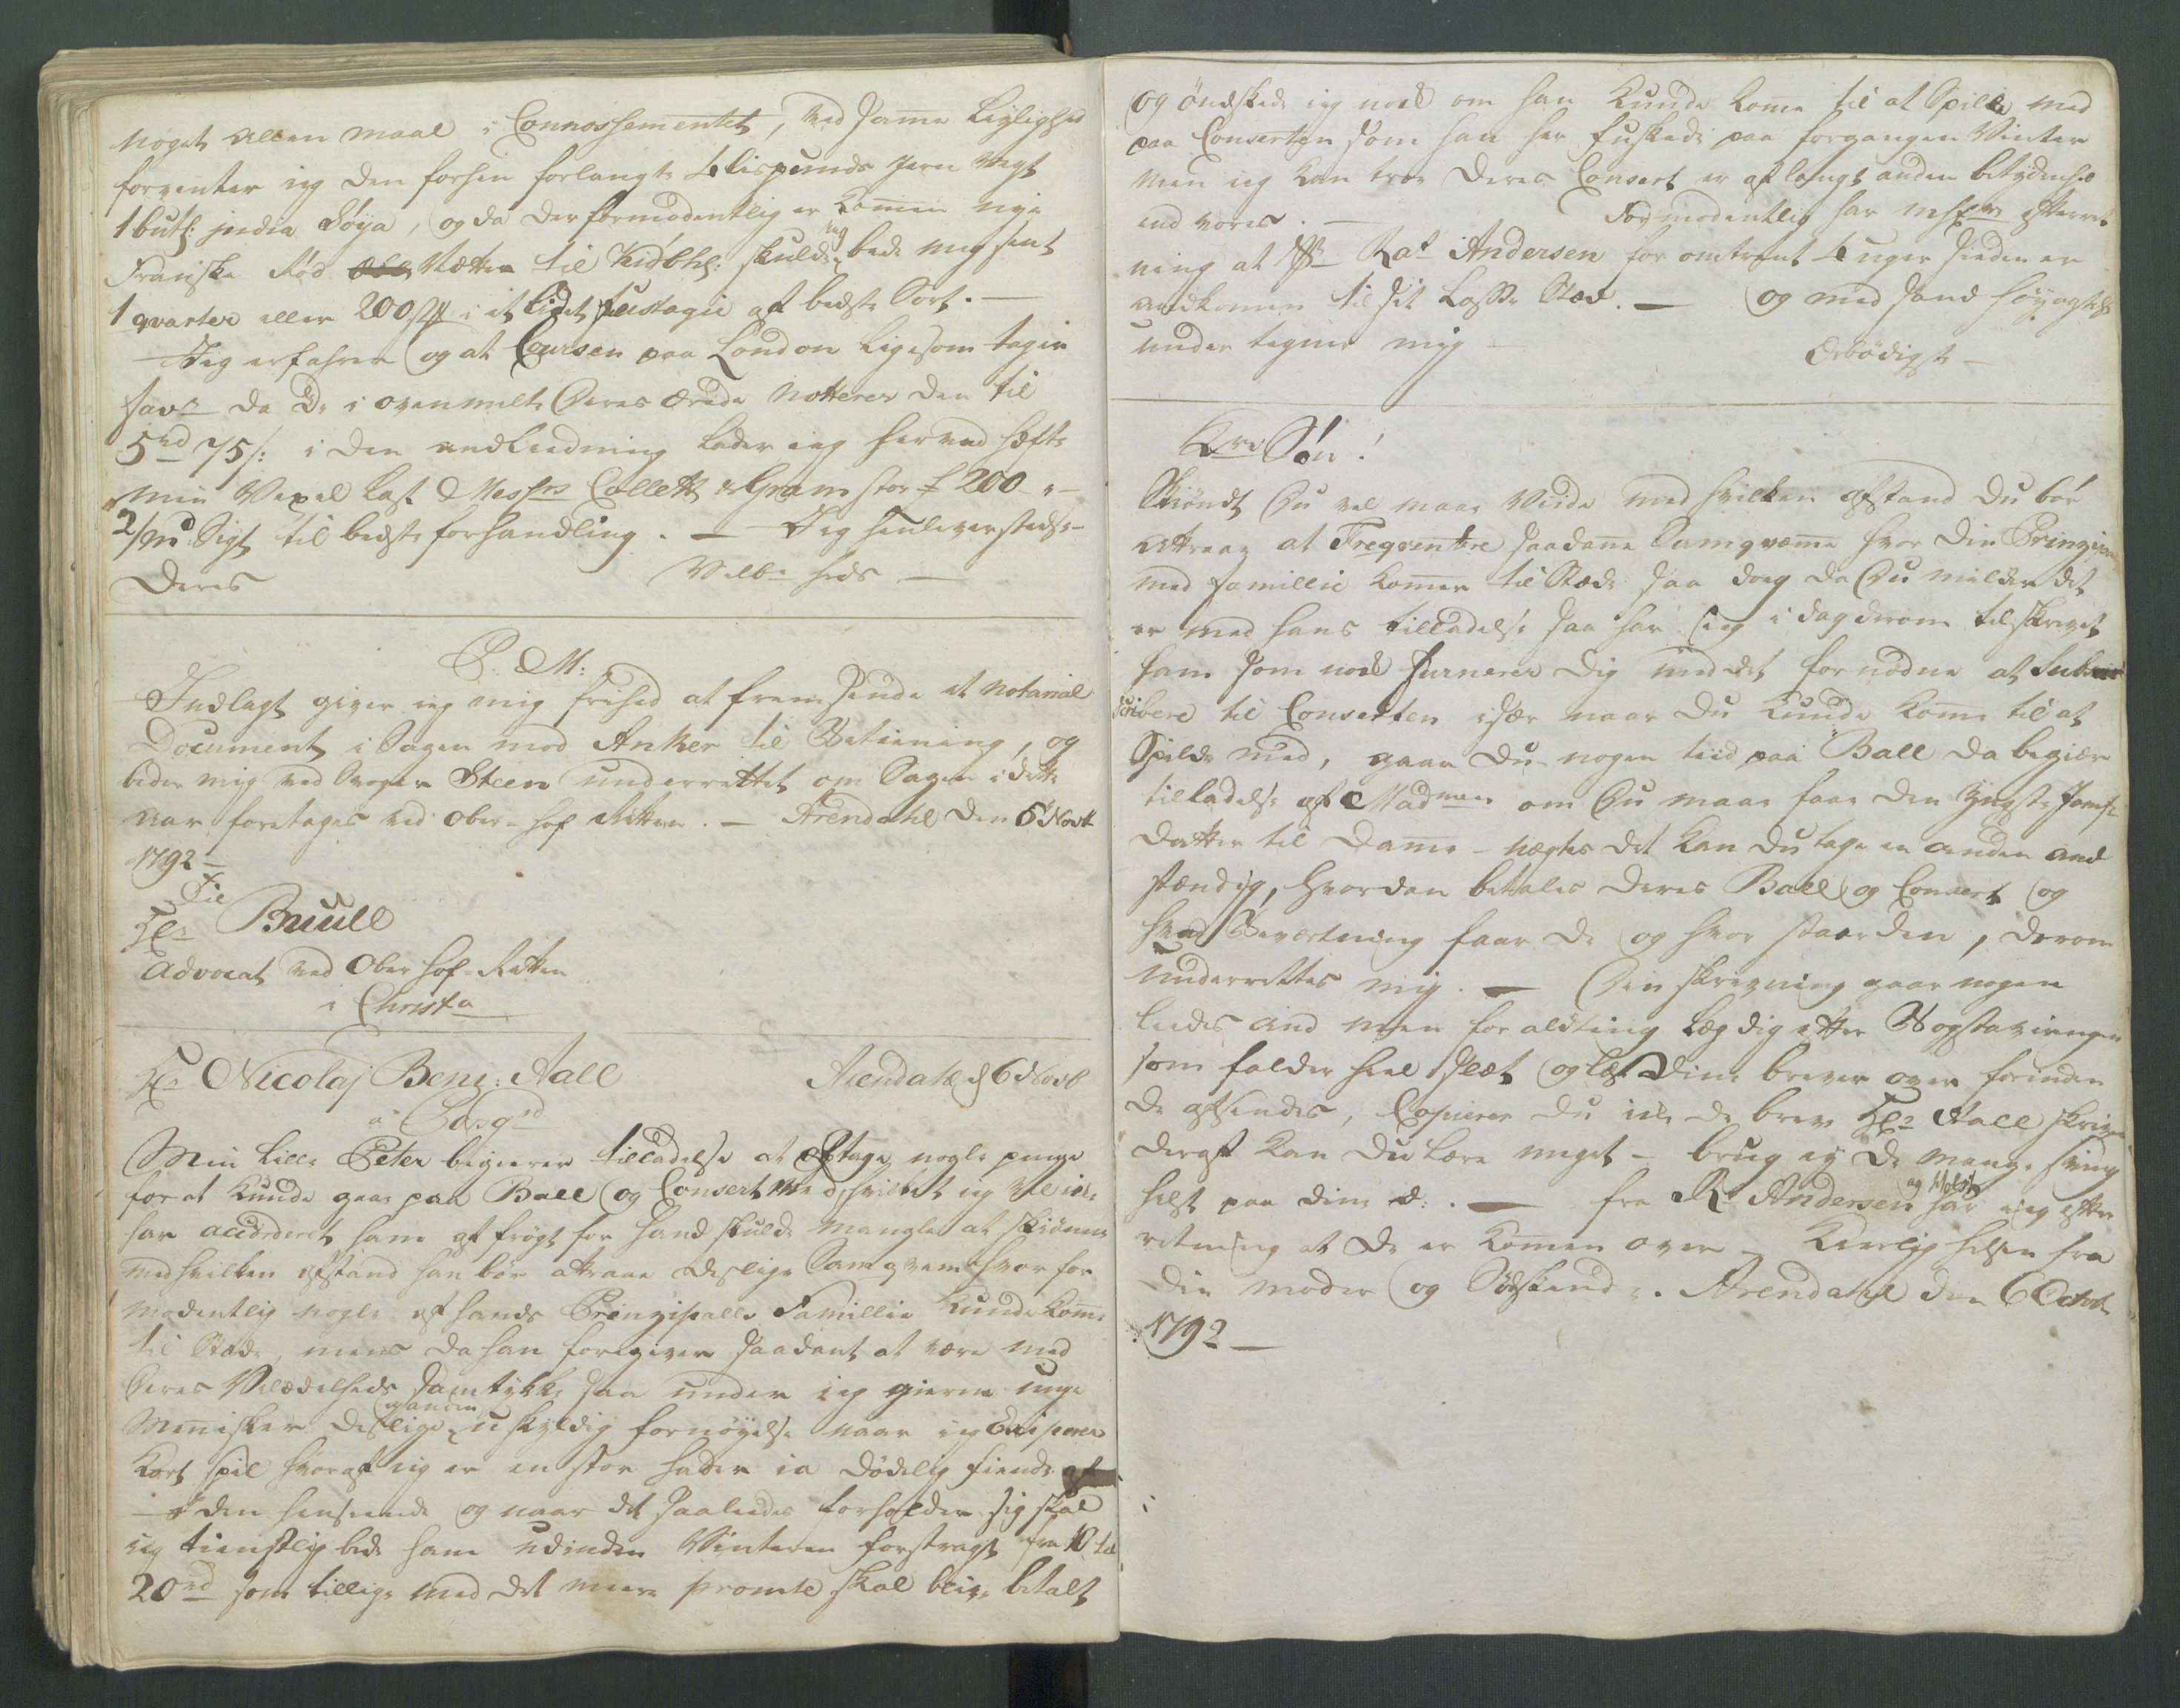 noget uden maal i Connossementet, ved samme Leylighed
forventer ieg den forhen forlangte 4 lispunds Jern Vegt
1 buth: jndia Soya, og da der formodentlig er kommen nye
Franske Rød Vætter til Kiøbhl: skulde ieg bede mig sent
1 qvarter eller 200 ℔ i et lidet fustagie af bedste Sort. —
Jeg erfahrer og at Coursen paa London ligesom tager
favr da De i ovenmelte Deres ærede notterer den til
5rd 75 s: i den andledning lader ieg herved hæfte
min Vexel Last Messrs Collett & Gram stor £ 200 -
2/md Sigt til bedste forhandling. — Jeg henleverstedse-
Deres Velbr heds —
P. M:
Indlagt giver ieg mig frihed at fremsende et notarial
Document i Sagen mod Anker til Betiening, og
beder mig ved Svoger Steen underrettet om Sagen i dette
aar foretages ved Ober-hof Retten. — Arendahl den 6 Novbr
1792 —
Til
Hr Buull
Advocat ved Ober hof-Retten
i Christa
Hr Nicolaj Benj: Aall Arendahl d 6 Novb
a Porsgrd
Min lille Peter begierer tilladelse at optage nogle penge
for at kunde gaae paa Ball og Consert med, hvilket ieg ele ikke
har accorderet ham af frøgt for hand skulde mangle at skiønne
med hvilken afstand han bør attraae deslige Samqvem hvor for
modentlig nogle af hands Prinzipalls Famillie kunde komme
til Stæde, mens da han foregiver saadant at være med
Deres Velædelheds Samtykke saa under ieg gierne unge
Menisker deslige og anden uskyldig fornøyelse naar ieg Exiperer
Kort spil hvoraf ieg er en stor hader ia dødelig fiende af
- i den henseende og naar det saaledes forholder sig skal
ieg tienstlig bede ham udinden Vinteren forstragt fra 10 til
20rd som tillige med det meere promte skal blive betalt
og ønskede ieg nok om han kunde komme til at Spille med
paa Conserten som han her fuskede paa forgangen Vinter
men ieg kan troe Deres Consert er af langt anden betydenhed
end vores. — Formodentlig har msfr efterret
ning at Skr Rat Andersen for omtrent 4 uger sieden er
ankommen til sit Losse Sted. — og med sand høyagtelse
under tegner mig — Ærbødigst —
Kre Søn!
Skiøndt Du vel maae viide med hvilken afstand du bør
attraae at Freqventere saadanne Samqvæmme hvor din Prinzipal
med famillie kommer til Stæde saa dog da Du melder det
er med hans tilladelse saa har ieg i dag derom tilskrevet
ham som nok furnerer dig med det fornødne at Sub
scribere til Conserten især naar du kunde komme til at
Spille med, gaar du nogen tiid paa Ball da begiær
tilladelse af Madmen om Du maae faae den yngste Jomfr
datter til Dame - nægtes det kan du tage en anden and
stændig, hvordan betales deres Ball og Consert og
hvad Bevertning faar De og hvor staar den, derom
underrettes mig. — Din skrivning gaar nogen
leedes and men for alting læg dig efter Bogstaveringen
som falder heel slet og læs dine brever over forinden
de afsendes, Copierer du ikke de brev Hr Aall skriver
deraf kan du lære meget — brug ey de mange sving
helst paa dine d: . — fra Rr Andersen og Holst har ieg efter
retning at de er kommen over — Kierlig hilsen fra
din moder og Sødskende. Arendahl den 6 Octob
1792 —